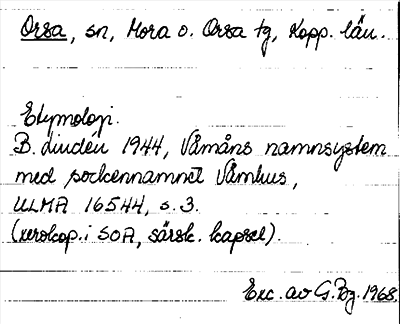 Orsa, sn, Mora o. Orsa tg, Kopp. län.
Etymologi.
B. Lindén 1944, Våmåns namnsystem
med sockennamnet Våmhus,
ULMA 16544, s. 3.
(xerokop. i SOA, särsk. kapsel).
Exc. av G. Bg. 1968.